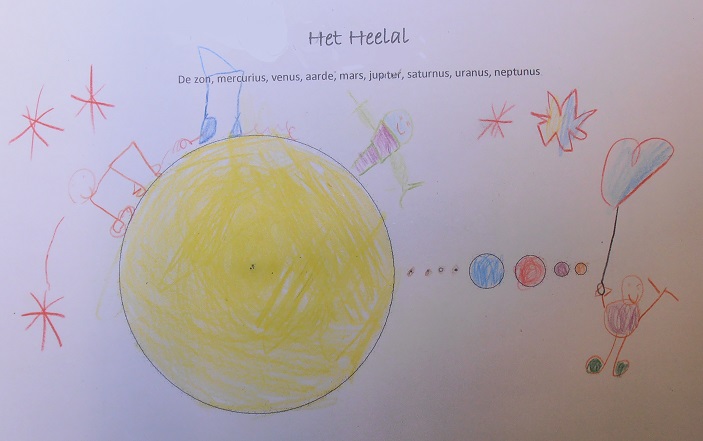 Het Heelal
De zon, mercurius, venus, aarde, mars, jupiter, saturnus, uranus, neptunus